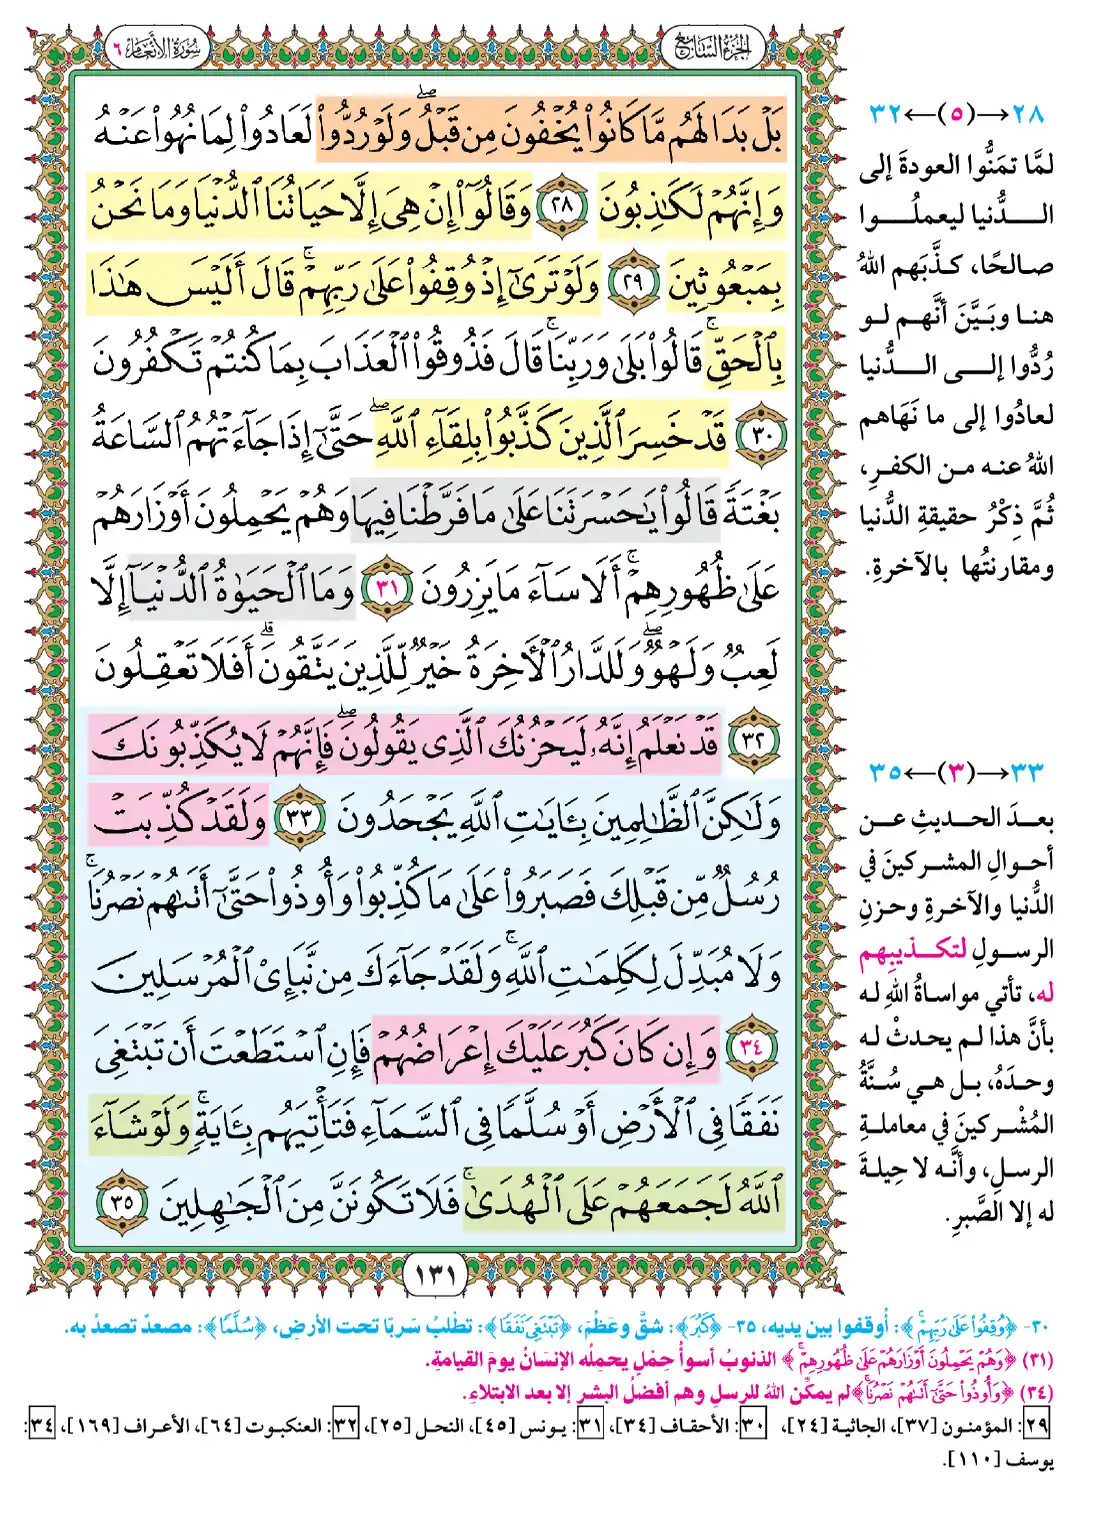 الجزء السابع
سورة الأنعام ٦
بَلْ بَدَا لَهُم مَّا كَانُوا۟ يُخْفُونَ مِن قَبْلُ ۖ وَلَوْ رُدُّوا۟ لَعَادُوا۟ لِمَا نُهُوا۟ عَنْهُ
وَإِنَّهُمْ لَكَـٰذِبُونَ ٢٨ وَقَالُوٓا۟ إِنْ هِىَ إِلَّا حَيَاتُنَا ٱلدُّنْيَا وَمَا نَحْنُ
بِمَبْعُوثِينَ ٢٩ وَلَوْ تَرَىٰٓ إِذْ وُقِفُوا۟ عَلَىٰ رَبِّهِمْ ۚ قَالَ أَلَيْسَ هَـٰذَا
بِٱلْحَقِّ ۚ قَالُوا۟ بَلَىٰ وَرَبِّنَا ۚ قَالَ فَذُوقُوا۟ ٱلْعَذَابَ بِمَا كُنتُمْ تَكْفُرُونَ
٣٠ قَدْ خَسِرَ ٱلَّذِينَ كَذَّبُوا۟ بِلِقَآءِ ٱللَّهِ ۖ حَتَّىٰٓ إِذَا جَآءَتْهُمُ ٱلسَّاعَةُ
بَغْتَةً قَالُوا۟ يَـٰحَسْرَتَنَا عَلَىٰ مَا فَرَّطْنَا فِيهَا وَهُمْ يَحْمِلُونَ أَوْزَارَهُمْ
عَلَىٰ ظُهُورِهِمْ ۚ أَلَا سَآءَ مَا يَزِرُونَ ٣١ وَمَا ٱلْحَيَوٰةُ ٱلدُّنْيَآ إِلَّا
لَعِبٌ وَلَهْوٌ ۖ وَلَلدَّارُ ٱلْـَٔاخِرَةُ خَيْرٌ لِّلَّذِينَ يَتَّقُونَ ۗ أَفَلَا تَعْقِلُونَ
٣٢ قَدْ نَعْلَمُ إِنَّهُۥ لَيَحْزُنُكَ ٱلَّذِى يَقُولُونَ ۖ فَإِنَّهُمْ لَا يُكَذِّبُونَكَ
وَلَـٰكِنَّ ٱلظَّـٰلِمِينَ بِـَٔايَـٰتِ ٱللَّهِ يَجْحَدُونَ ٣٣ وَلَقَدْ كُذِّبَتْ
رُسُلٌ مِّن قَبْلِكَ فَصَبَرُوا۟ عَلَىٰ مَا كُذِّبُوا۟ وَأُوذُوا۟ حَتَّىٰٓ أَتَىٰهُمْ نَصْرُنَا ۚ
وَلَا مُبَدِّلَ لِكَلِمَـٰتِ ٱللَّهِ ۚ وَلَقَدْ جَآءَكَ مِن نَّبَإِى۟ ٱلْمُرْسَلِينَ
٣٤ وَإِن كَانَ كَبُرَ عَلَيْكَ إِعْرَاضُهُمْ فَإِنِ ٱسْتَطَعْتَ أَن تَبْتَغِىَ
نَفَقًا فِى ٱلْأَرْضِ أَوْ سُلَّمًا فِى ٱلسَّمَآءِ فَتَأْتِيَهُم بِـَٔايَةٍ ۚ وَلَوْ شَآءَ
ٱللَّهُ لَجَمَعَهُمْ عَلَى ٱلْهُدَىٰ ۚ فَلَا تَكُونَنَّ مِنَ ٱلْجَـٰهِلِينَ ٣٥
١٣١
٢٨→(٥)←٣٢
لمَّا تمَنُّوا العودةَ إلى
الدُّنيا ليعملُوا
صالحًا، كذَّبَهم اللهُ
هنا وبَيَّنَ أنَّهم لو
رُدُّوا إلى الدُّنيا
لعادُوا إلى ما نَهَاهم
اللهُ عنه من الكفرِ،
ثُمَّ ذِكْرُ حقيقةِ الدُّنيا
ومقارنتُها بالآخرةِ.
٣٣→(٣)←٣٥
بعدَ الحديثِ عن
أحوالِ المشركينَ في
الدُّنيا والآخرةِ وحزنِ
الرسولِ لتكذيبِهم
له، تأتي مواساةُ اللهِ له
بأنَّ هذا لم يحدثْ له
وحدَهُ، بل هي سُنَّةُ
المُشْركينَ في معاملةِ
الرسلِ، وأنَّه لا حِيلةَ
له إلا الصَّبرِ.
٣٠- ﴿وُقِفُوا۟ عَلَىٰ رَبِّهِمْ ۚ﴾: أُوقفوا بين يديه، ٣٥- ﴿كَبُرَ﴾: شقَّ وعَظُمَ، ﴿تَبْتَغِىَ نَفَقًا﴾: تطْلبُ سَربًا تحت الأرضِ، ﴿سُلَّمًا﴾: مصعدٌ تصعدُ به.
(٣١) ﴿وَهُمْ يَحْمِلُونَ أَوْزَارَهُمْ عَلَىٰ ظُهُورِهِمْ ۚ﴾ الذنوبُ أسوأُ حِمْلٍ يحملُه الإنسانُ يومَ القيامةِ.
(٣٤) ﴿وَأُوذُوا۟ حَتَّىٰٓ أَتَىٰهُمْ نَصْرُنَا ۚ﴾ لم يمكِّن اللهُ للرسلِ وهم أفضلُ البشرِ إلا بعد الابتلاءِ.
٢٩: المؤمنون [٣٧]، الجاثية [٢٤]، ٣٠: الأحقاف [٣٤]، ٣١: يونس [٤٥]، النحل [٢٥]، ٣٢: العنكبوت [٦٤]، الأعراف [١٦٩]، ٣٤:
يوسف [١١٠].